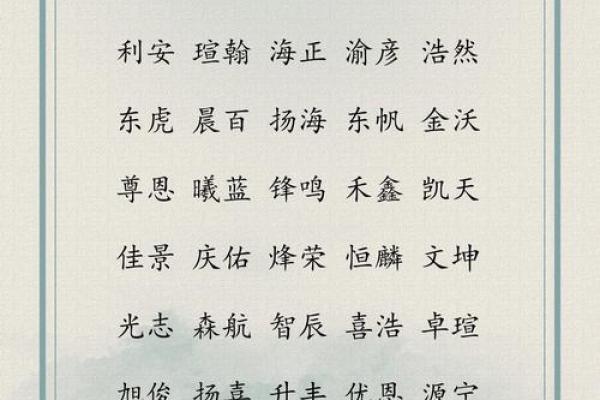 利安 瑄翰 海正 渝彦 浩然
东虎 晨百 扬海 东帆 金沃
尊恩 曦蓝 锋鸣 禾鑫 凯天
佳景 庆佑 烽荣 恒麟 文坤
光志 森航 智辰 喜浩 卓瑄
旭俊 扬喜 升丰 优恩 源宁